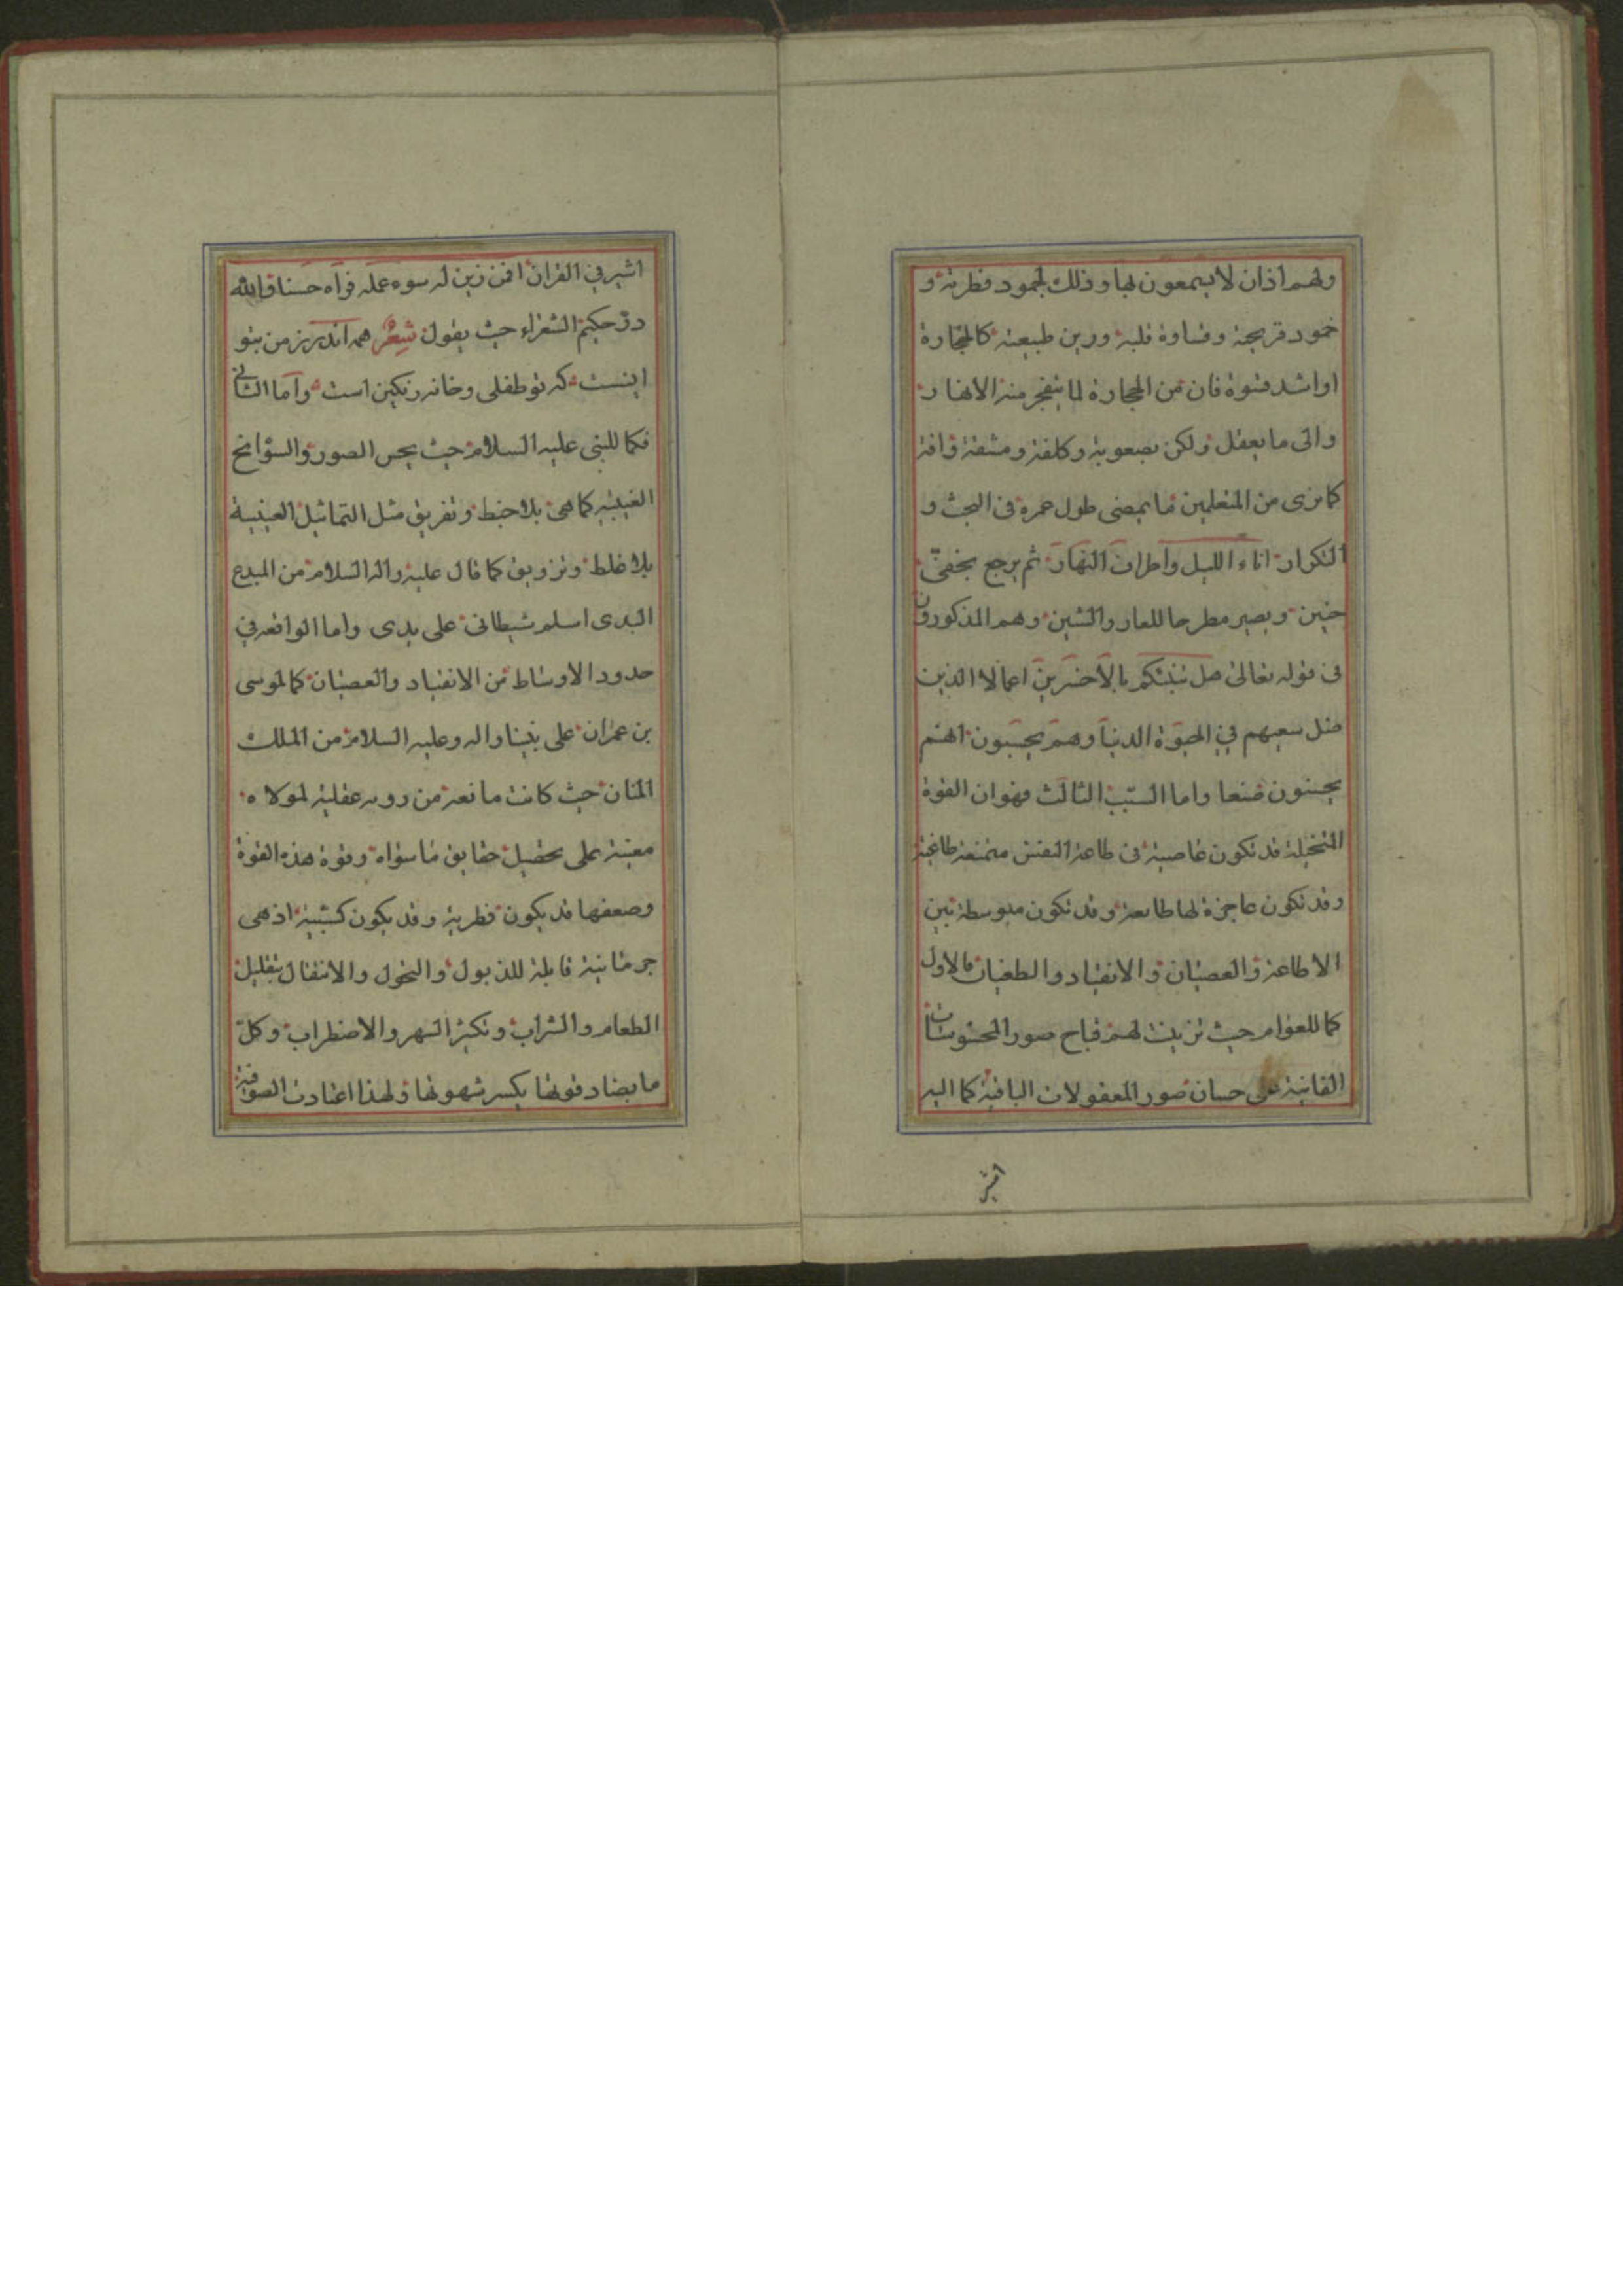 ولهم اذان لا يسمعون بها وذلك لجمود فطرته و
خمود قريحته وقساوة قلبه ورين طبيعته كالحجارة
او اشد قسوة فان من الحجارة لما يتفجر منه الانهار
واتى ما يعقل ولكن بصعوبة وكلفة ومشقة وافة
كما نرى من المتعلمين ما يمضى طول عمره فى البحث و
التكرار اناء الليل واطراف النهار ثم يرجع بخفىّ
حنين ويصير مطرحا للعار والشين وهم المذكورون
فى قوله تعالى هل ننبئكم بالاخسرين اعمالا الذين
ضل سعيهم في الحيوة الدنيا وهم يحسبون انهم
يحسنون صنعا واما السبب الثالث فهو ان القوة
المتخيلة قد تكون عاصية فى طاعة النفس ممتنعة طاغية
وقد تكون عاجزة لها طايعة وقد تكون متوسطة بين
الاطاعة والعصيان والانقياد والطغيان فالاول
كما للعوام حيث تزينت لهم قباح صور المحسوسات
الفانية على حسان صور المعقولات الباقية كما اليه
اشير
اشير في القران افمن زين له سوء عمله فراه حسنا ولله
درّ حكيم الشعراء حيث يقول شعر همه اندرز من بتو
اينست كه تو طفلى وخانه رنكين است واما الثاني
فكما للنبى عليه السلام حيث يحس الصور والسوانح
الغيبيه كما هى بلا خبط وتفريق مثل التماثيل العينية
بلا غلط وتزويق كما قال عليه واله السلام من المبدع
البدى اسلم شيطانى على يدى واما الواقعه في
حدود الاوساط من الانقياد والعصيان كما لموسى
بن عمران على نبينا واله وعليه السلام من الملك
المنان حيث كانت مانعة من رويه عقلية لمولاه
معينة على تحصيل حقايق ما سواه وقوة هذه القوة
وضعفها قد يكون فطرية وقد يكون كسبية اذ هى
جرمانية قابلة للذبول والنحول والانتقال بتقليل
الطعام والشراب وتكثر السهر والاضطراب وكلّ
ما يضاد قوتها يكسر شهوتها ولهذا اعتادت الصوفية